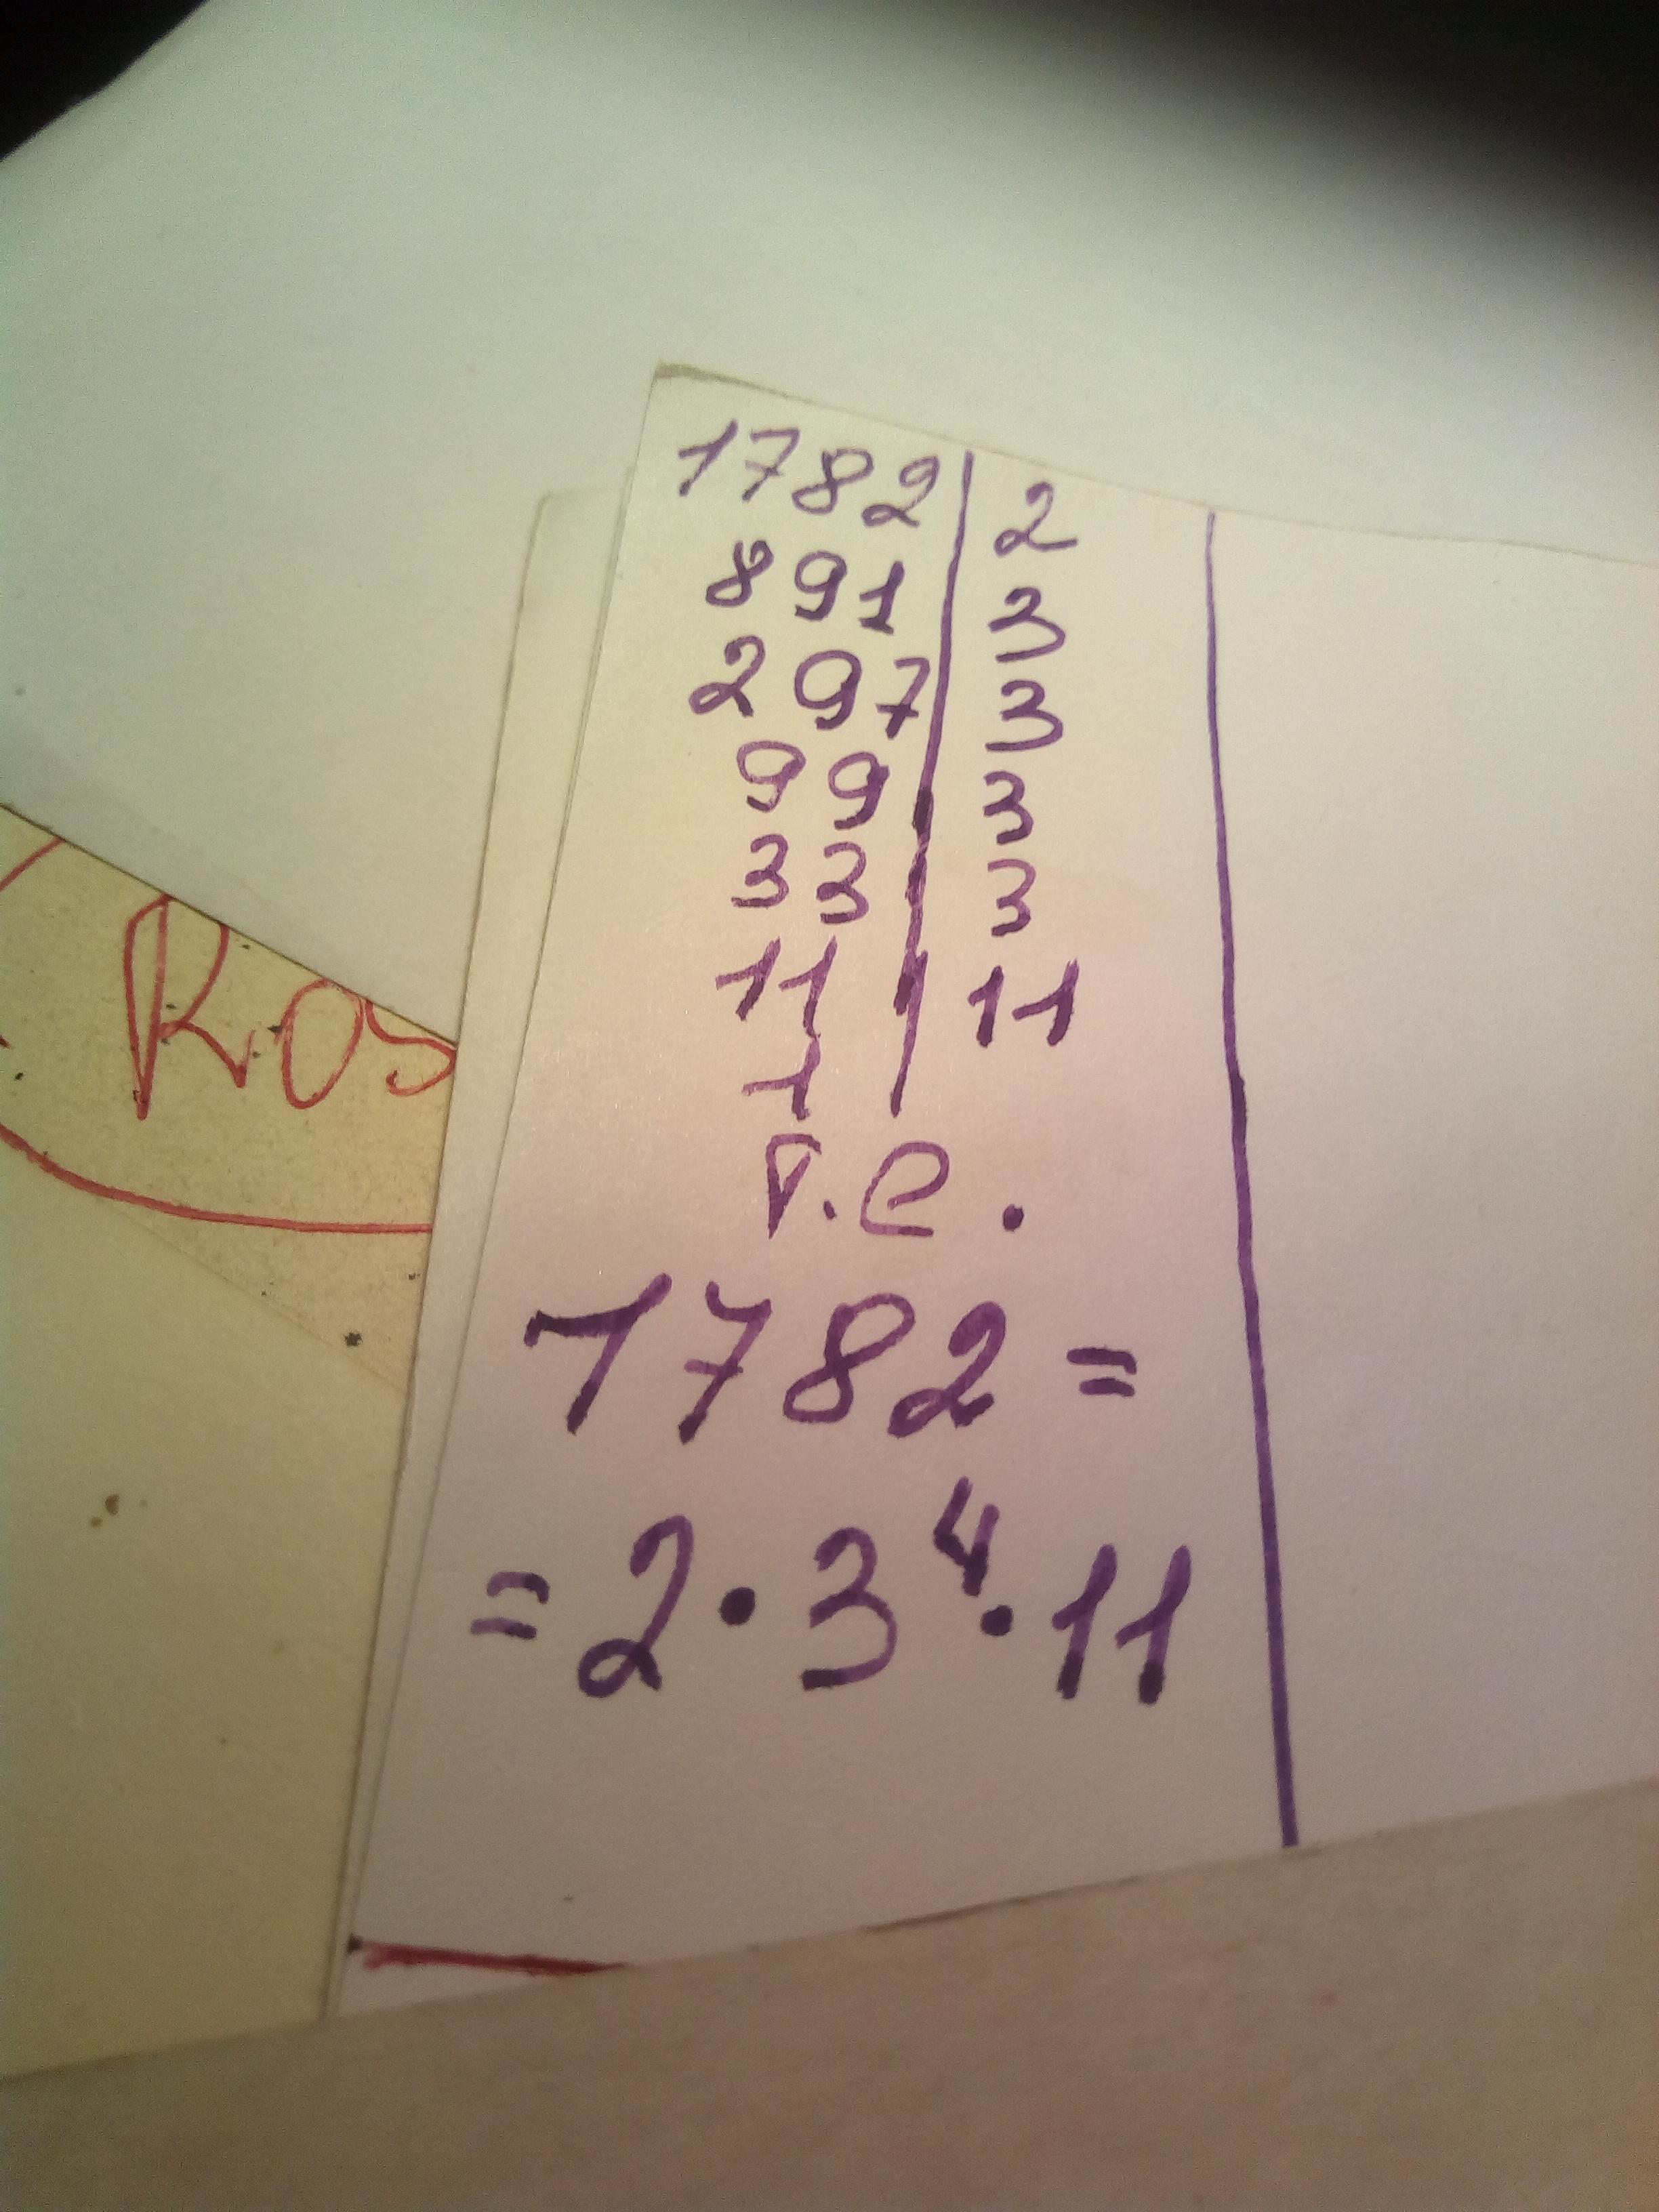 1782 | 2
891 | 3
297 | 3
99 | 3
33 | 3
11 | 11
1 |
P.e.
1782 =
= 2 · 3⁴ · 11
Ros